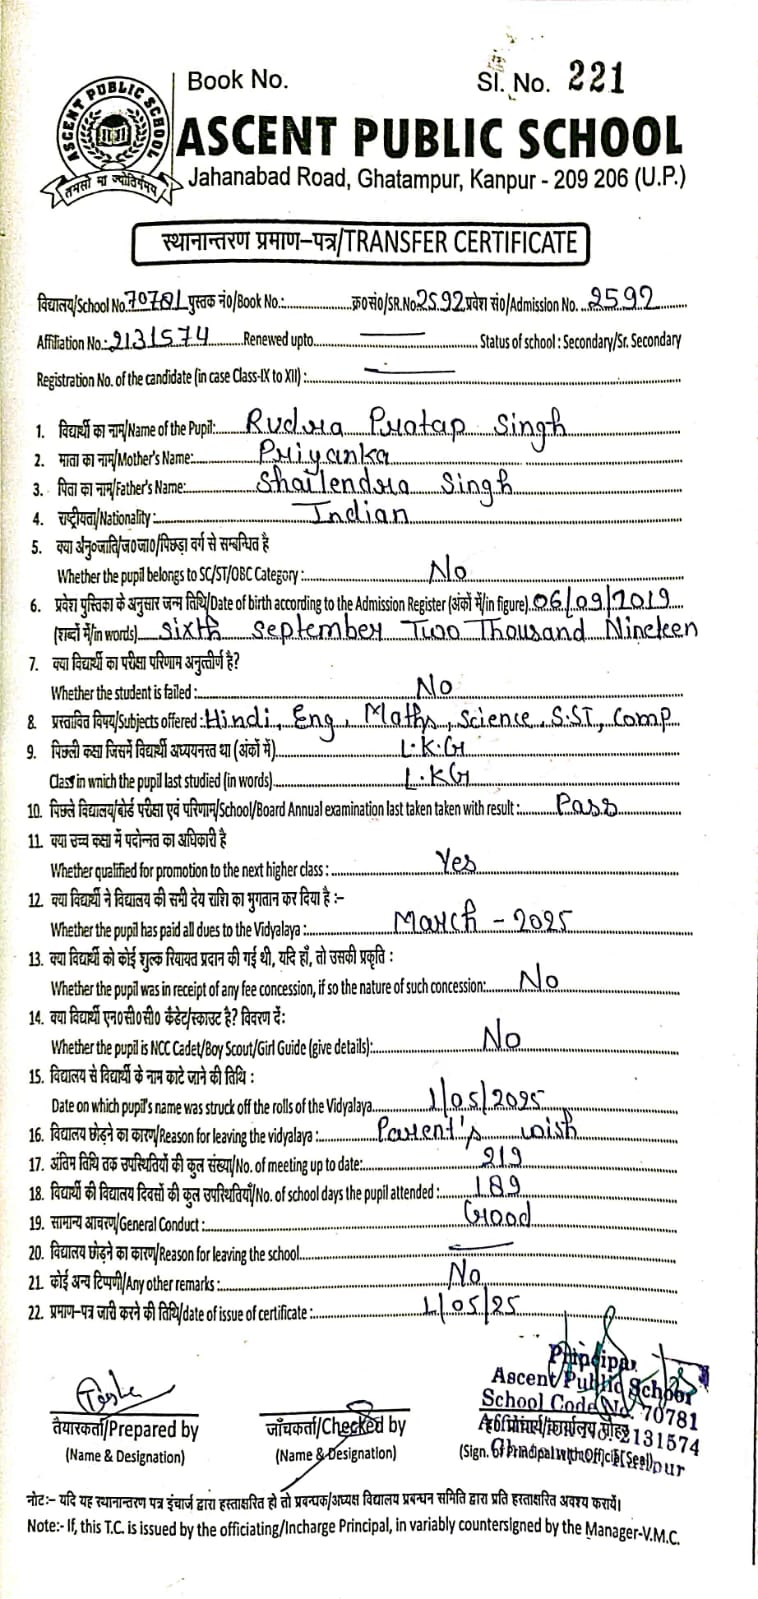 Book No. Sl. No. 221
ASCENT PUBLIC SCHOOL
तमसो मा ज्योतिर्गमय
ASCENT PUBLIC SCHOOL
Jahanabad Road, Ghatampur, Kanpur - 209 206 (U.P.)
स्थानान्तरण प्रमाण-पत्र/TRANSFER CERTIFICATE
विद्यालय/School No. 70781 पुस्तक नं०/Book No.: क्र०सं०/SR.No. 2592 प्रवेश सं०/Admission No. 2592
Affiliation No.: 2131574 Renewed upto — Status of school : Secondary/Sr. Secondary
Registration No. of the candidate (in case Class-IX to XII) : —
1. विद्यार्थी का नाम/Name of the Pupil: Rudra Pratap Singh
2. माता का नाम/Mother's Name: Priyanka
3. पिता का नाम/Father's Name: Shailendra Singh
4. राष्ट्रीयता/Nationality: Indian
5. क्या अनु०जाति/ज०जा०/पिछड़ा वर्ग से सम्बन्धित है
Whether the pupil belongs to SC/ST/OBC Category : No
6. प्रवेश पुस्तिका के अनुसार जन्म तिथि/Date of birth according to the Admission Register (अंकों में/in figure). 06/09/2019
(शब्दों में/in words) Sixth September Two Thousand Nineteen
7. क्या विद्यार्थी का परीक्षा परिणाम अनुत्तीर्ण है?
Whether the student is failed : No
8. प्रस्तावित विषय/Subjects offered : Hindi, Eng, Maths, Science, S.ST, Comp
9. पिछली कक्षा जिसमें विद्यार्थी अध्ययनरत था (अंकों में) L.K.G
Class in wnich the pupil last studied (in words) L.KG
10. पिछले विद्यालय/बोर्ड परीक्षा एवं परिणाम/School/Board Annual examination last taken taken with result : Pass
11. क्या उच्च कक्षा में पदोन्नत का अधिकारी है
Whether qualified for promotion to the next higher class : Yes
12. क्या विद्यार्थी ने विद्यालय की सभी देय राशि का भुगतान कर दिया है :-
Whether the pupil has paid all dues to the Vidyalaya : March - 2025
13. क्या विद्यार्थी को कोई शुल्क रियायत प्रदान की गई थी, यदि हाँ, तो उसकी प्रकृति :
Whether the pupil was in receipt of any fee concession, if so the nature of such concession: No
14. क्या विद्यार्थी एन०सी०सी० कैडेट/स्काउट है? विवरण दें:
Whether the pupil is NCC Cadet/Boy Scout/Girl Guide (give details): No
15. विद्यालय से विद्यार्थी के नाम काटे जाने की तिथि :
Date on which pupil's name was struck off the rolls of the Vidyalaya 1/05/2025
16. विद्यालय छोड़ने का कारण/Reason for leaving the vidyalaya : Parent's wish
17. अंतिम तिथि तक उपस्थितियों की कुल संख्या/No. of meeting up to date: 219
18. विद्यार्थी की विद्यालय दिवसों की कुल उपस्थितियाँ/No. of school days the pupil attended : 189
19. सामान्य आचरण/General Conduct : Good
20. विद्यालय छोड़ने का कारण/Reason for leaving the school —
21. कोई अन्य टिप्पणी/Any other remarks : No
22. प्रमाण-पत्र जारी करने की तिथि/date of issue of certificate : 1/05/25
Principal
Ascent Public School
School Code No. 70781
2131574
तैयारकर्ता/Prepared by जाँचकर्ता/Checked by
(Name & Designation) (Name & Designation) (Sign. of Principal with Official Seal)
नोट:- यदि यह स्थानान्तरण पत्र इंचार्ज द्वारा हस्ताक्षरित हो तो प्रबन्धक/अध्यक्ष विद्यालय प्रबन्धन समिति द्वारा प्रति हस्ताक्षरित अवश्य करायें।
Note:- If, this T.C. is issued by the officiating/Incharge Principal, in variably countersigned by the Manager-V.M.C.